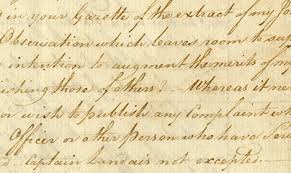 in your Gazette of the extract of my Jou
Observation which leaves room to sup
intention to augment the merits of my
ishing those of others? - Whereas it ne
or wish to publish any Complaint wh
Officer or other Person who have serv
Captain Landais not excepted. -